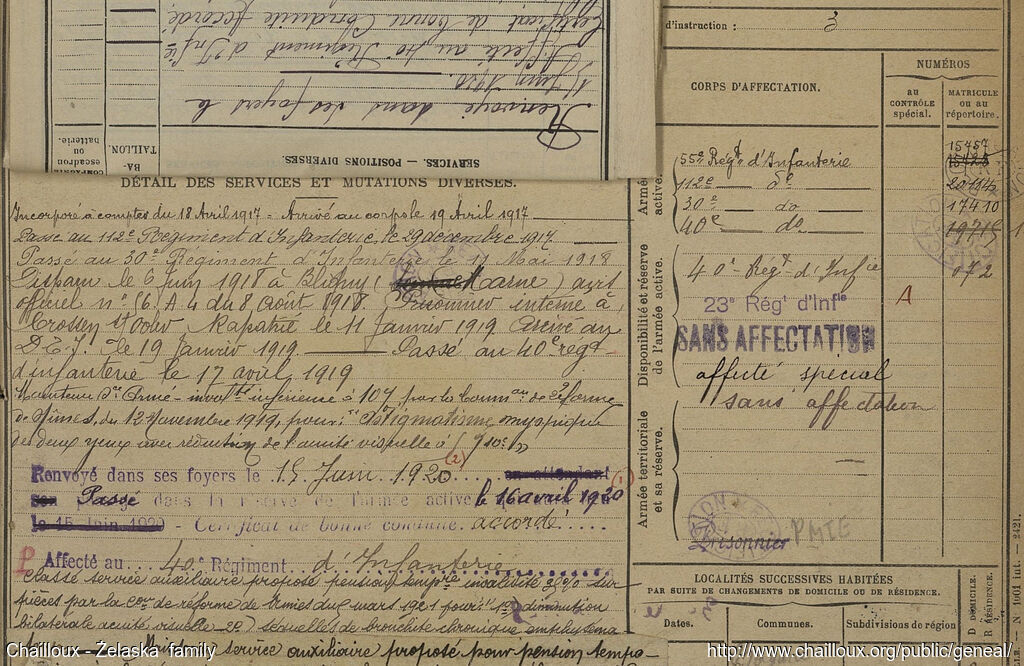 Renvoyé dans ses foyers le
15 Juin 1920
Affecté au 40 Régiment d'Infie
Certificat de Bonne Conduite Accordé
SERVICES. — POSITIONS DIVERSES.
BA-
TAILLON.
escadron
ou
batterie
d'instruction : 3
CORPS D'AFFECTATION.
NUMÉROS
au
CONTRÔLE
spécial.
MATRICULE
ou au
répertoire.
Armée
active.
55e Régt d'Infanterie
15457
15428
112e — do
30e — do —
17410
40e — do —
19715
Disponibilité et réserve
de l'armée active.
40e Régt d'Infie
072
A
23e Régt d'Infie
SANS AFFECTATION
affecté spécial
sans affectation
Armée territoriale
et sa réserve.
Prisonnier PMIG
LOCALITÉS SUCCESSIVES HABITÉES
PAR SUITE DE CHANGEMENTS DE DOMICILE OU DE RÉSIDENCE.
Dates.
Communes.
Subdivisions de région
D DOMICILE.
R RÉSIDENCE.
N° 1061 int. - 2421.
DÉTAIL DES SERVICES ET MUTATIONS DIVERSES.
Incorporé à compter du 18 Avril 1917 - Arrivé au corps le 19 Avril 1917
Passé au 112e Régiment d'Infanterie, le 29 décembre 1917
Passé au 30e Régiment d'Infanterie le 11 Mai 1918
Disparu le 6 juin 1918 à Bligny (Marne) avis
officiel n° 6. A 4 du 8 Août 1918 Prisonnier interné à
Crossen Rapatrié le 11 Janvier 1919 Arrivé au
D.E.J. le 19 Janvier 1919 — Passé au 40e régt
d'infanterie le 17 avril 1919
Maintenu Sce Armé - invalté inférieure à 10% par la comm on de réforme
de Nîmes, du 12 Novembre 1919, pour: Astigmatisme myopique
des deux yeux avec réduction de l'acuité visuelle à
Renvoyé dans ses foyers le 15 Juin 1920 (2) en attendant (1)
son Passé dans la réserve de l'armée active le 16 avril 1920
le 15 Juin 1920 - Certificat de bonne conduite accordé
P Affecté au 40e Régiment d'Infanterie
classé service auxiliaire proposé pension tempre invalidité sur
pièces par la con de réforme de Nîmes du mars 1921 pour: 1° diminution
bilatérale acuité visuelle 2°) séquelles de bronchite chronique emphyséma-
service auxiliaire proposé pour pension tempo-
Chailloux - Żelaska family
http://www.chailloux.org/public/geneal/